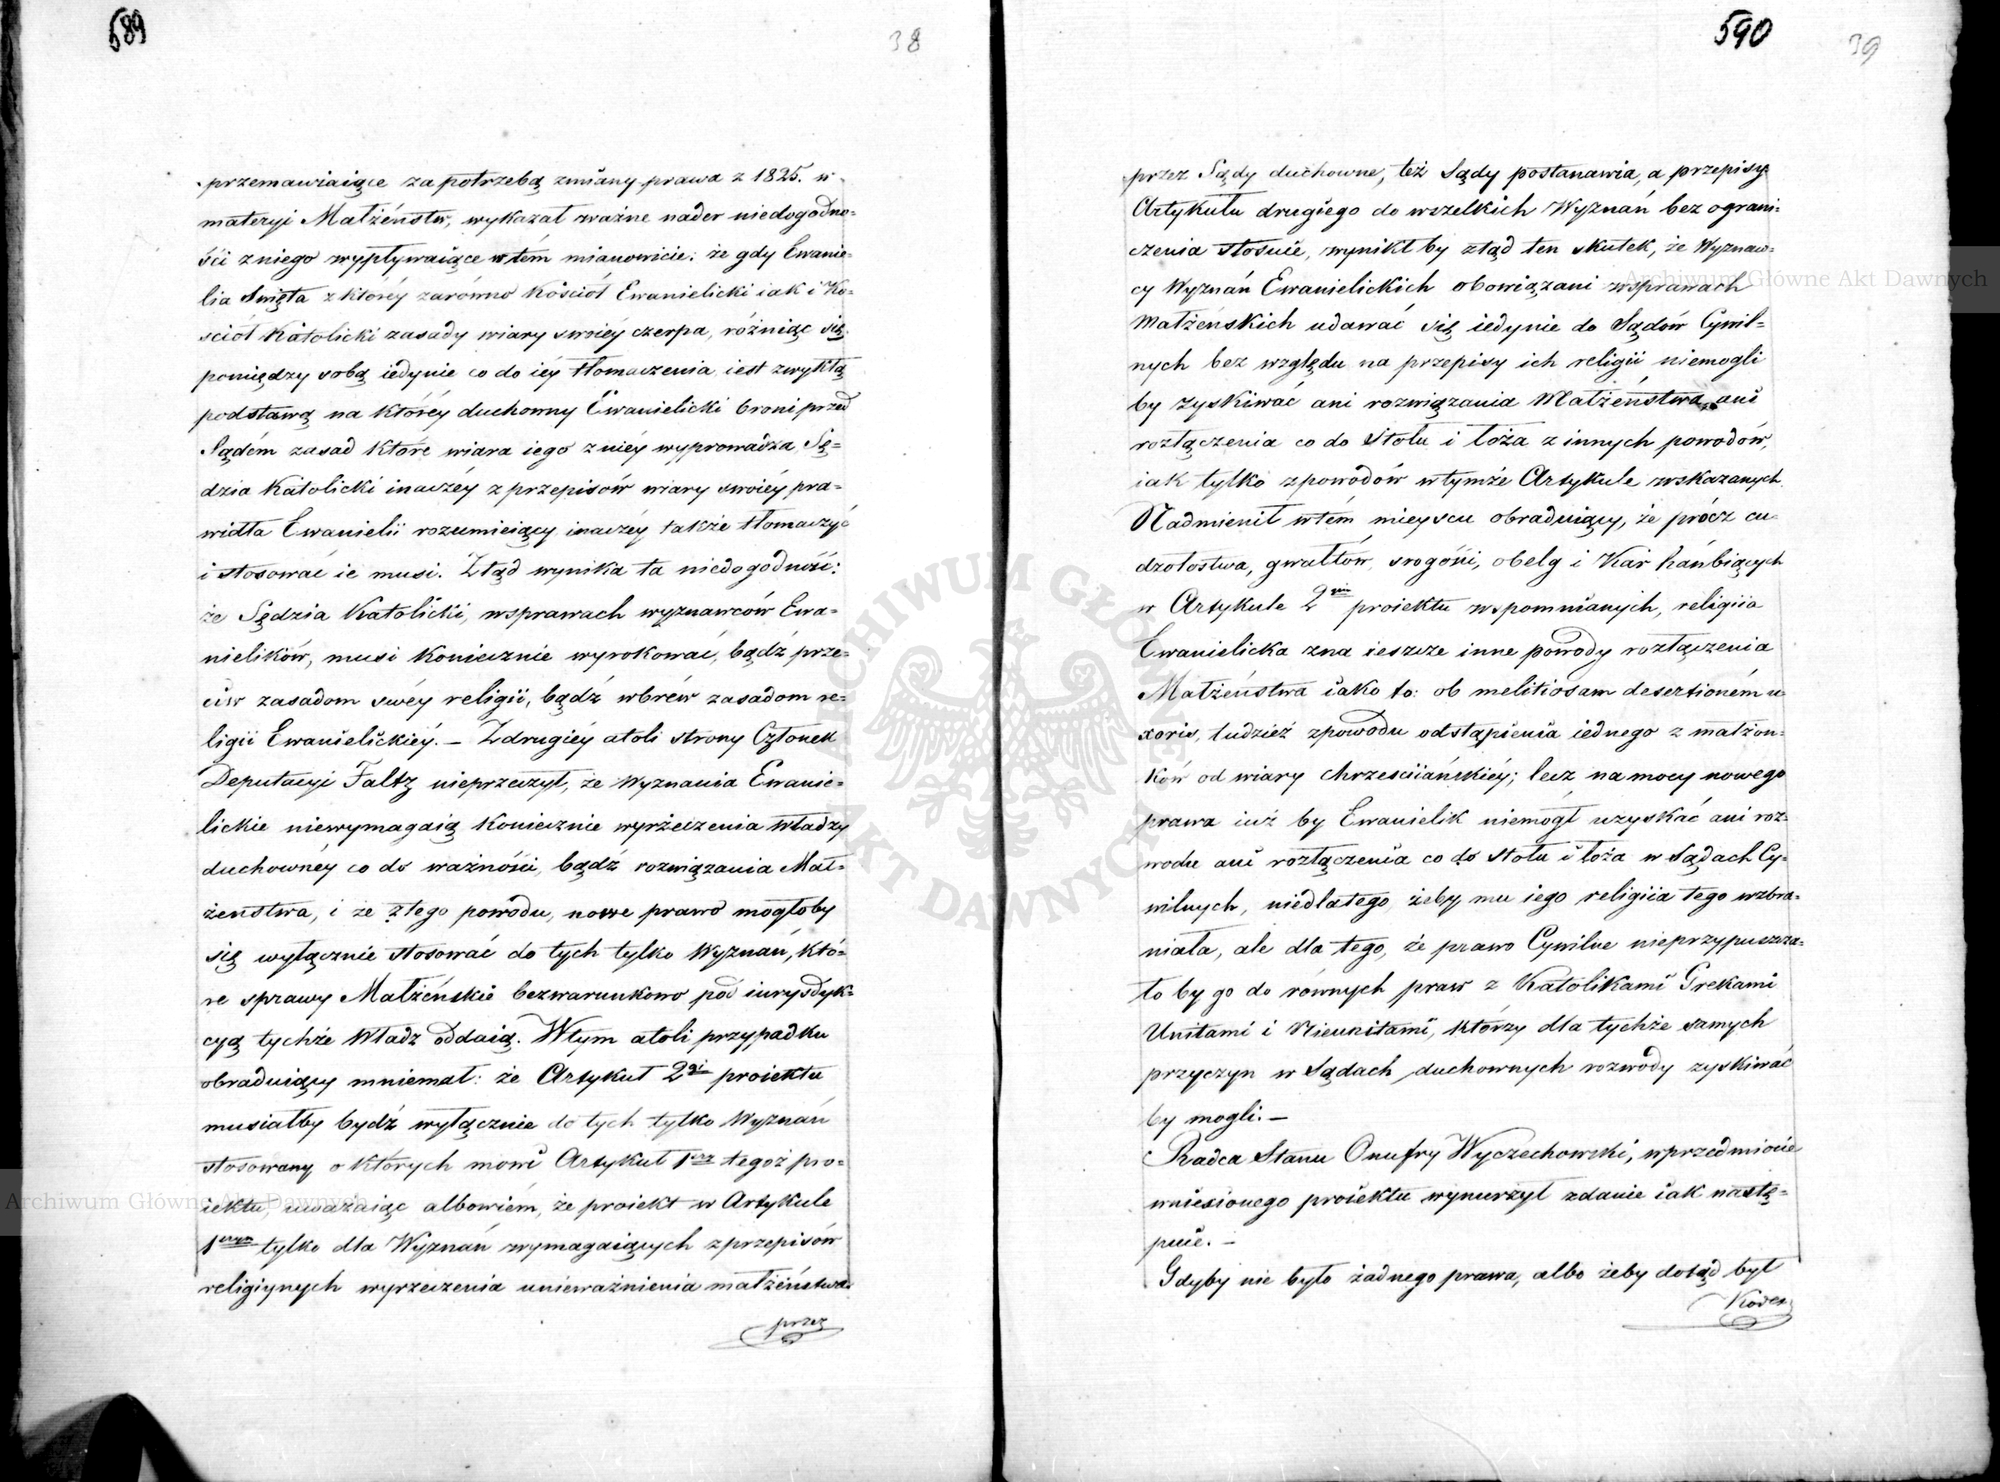 589
38
przemawiaiące za potrzebą zmiany prawa z 1825. w
materyi Małżeństw, wykazał ważne nader niedogodno=
ści z niego wypływaiące w tém mianowicie: że gdy Ewanie=
lia Święta z któréy zarówno Kościół Ewanielicki iak i Ko=
ściół Katolicki zasady wiary swoiéy czerpa, różniąc się
pomiędzy sobą iedynie co do iéy tłomaczenia iest zwykłą
podstawą na któréy duchowny Ewanielicki broni przed
Sądém zasad które wiara iego z niéy wyprowadza, Sę=
dzia Katolicki inaczéy z przepisów wiary swoiéy pra=
widła Ewanielii rozumieiący inaczéy także tłomaczyć
i stosować ie musi. Ztąd wynika ta niedogodność:
że Sędzia Katolicki, w sprawach wyznawców Ewa=
nielików, musi koniecznie wyrokować, bądź prze=
ciw zasadom swéy religii, bądź wbrew zasadom re=
ligii Ewanielickiéy. — Z drugiéy atoli strony Członek
Deputacyi Faltz nieprzeczył, że Wyznania Ewanie=
lickie niewymagaią koniecznie wyrzeczenia Władzy
duchownéy co do ważności, bądź rozwiązania Mał=
żeństwa, i że z tego powodu, nowe prawo mogłoby
się wyłącznie stosować do tych tylko Wyznań, któ=
re sprawy Małżeńskie bezwarunkowo pod iurysdyk=
cyą tychże Władz oddaią. W tym atoli przypadku
obraduiący mniemał: że Artykuł 2gi proiektu
musiałby bydź wyłącznie do tych tylko Wyznań
stosowany o których mówi Artykuł 1szy tegoż pro=
iektu, uważaiąc albowiém, że proiekt w Artykule
1wszym tylko dla Wyznań wymagaiących z przepisów
religiynych wyrzeczenia unieważnienia małżeństwa
przez
590
39
przez Sądy duchowne, też Sądy postanawia, a przepisy
Artykułu drugiego do wszelkich Wyznań bez ograni=
czenia stosuie, wynikł by ztąd ten skutek, że Wyznaw=
cy Wyznań Ewanielickich obowiązani w sprawach
Małżeńskich udawać się iedynie do Sądów Cywil=
nych bez względu na przepisy ich religii niemogli
by zyskiwać ani rozwiązania Małżeństwa, ani
rozłączenia co do Stołu i łoża z innych powodów,
iak tylko z powodów w tymże Artykule wskazanych.
Nadmienił w tém mieyscu obraduiący, że prócz cu=
dzołostwa, gwałtów, srogości, obelg i Kar hańbiących
w Artykule 2gim proiektu wspomnianych, religiia
Ewanielicka zna ieszcze inne powody rozłączenia
Małżeństwa iako to: ob melitiosam desertioném u=
xoris, tudzież z powodu odstąpienia iednego z małżon=
ków od wiary chrześciiańskiéy; lecz na mocy nowego
prawa iuż by Ewanielik niemógł uzyskać ani roz=
wodu ani rozłączenia co do stołu i łoża w Sądach Cy=
wilnych, niedlatego, żeby mu iego religiia tego wzbra=
niała, ale dla tego, że prawo Cywilne nieprzypuszcza=
ło by go do równych praw z Katolikami Grekami
Unitami i Nieunitami, którzy dla tychże samych
przyczyn w Sądach duchownych rozwody zyskiwać
by mogli. —
Radca Stanu Onufry Wyczechowski, w przedmiocie
wniesionego proiektu wynurzył zdanie iak nastę=
puie. —
Gdyby nie było żadnego prawa, albo żeby dotąd był
Kodex
Archiwum Główne Akt Dawnych
Archiwum Główne Akt Dawnych
ARCHIWUM GŁÓWNE AKT DAWNYCH